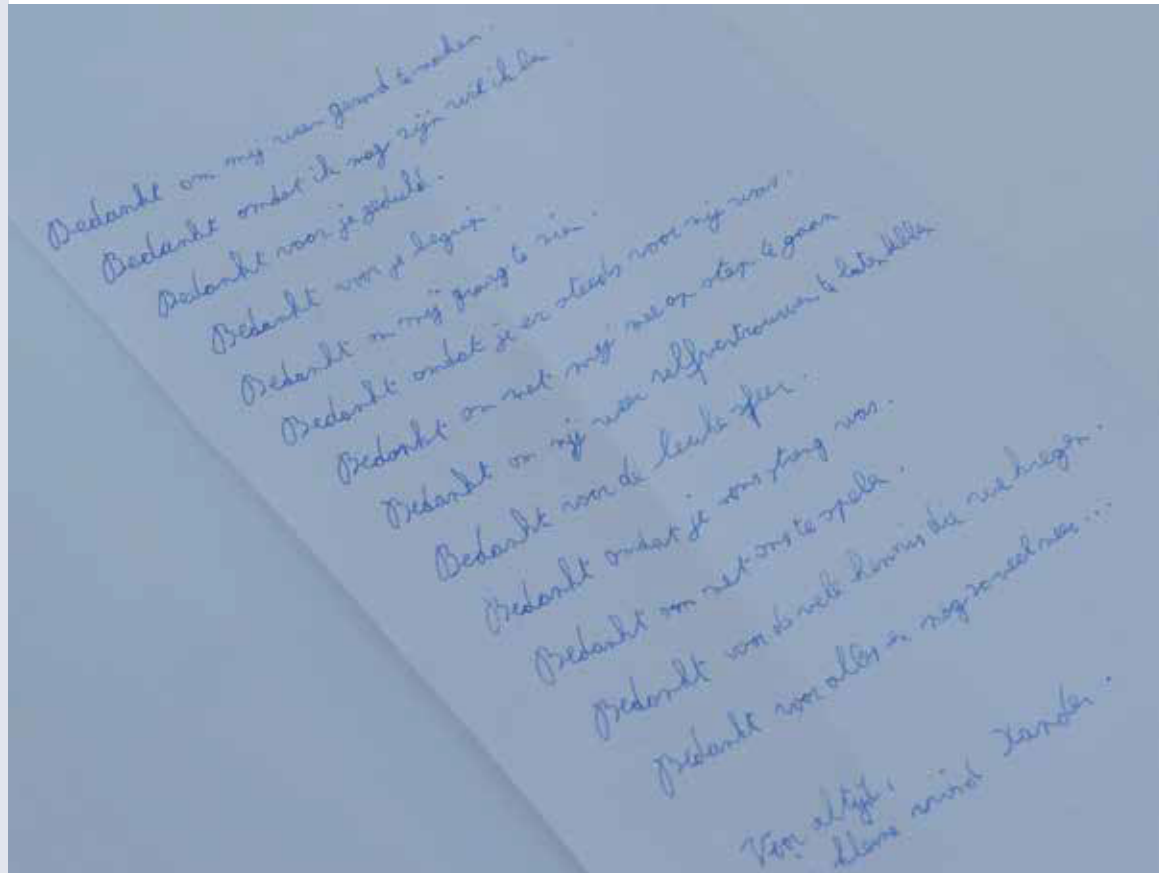 Bedankt om mij weer gezond te maken.
Bedankt omdat ik mag zijn wie ik ben.
Bedankt voor je geduld.
Bedankt voor je begrip.
Bedankt om mij graag te zien.
Bedankt omdat je er steeds voor mij was.
Bedankt om met mij mee op stap te gaan
Bedankt om mij weer zelfvertrouwen te laten
Bedankt voor de leuke sfeer.
Bedankt omdat je soms streng was.
Bedankt om met ons te spelen.
Bedankt voor de vele kennis die we kregen.
Bedankt voor alles en nog zoveel meer...
Voor altijd,
kleine vriend Xander.